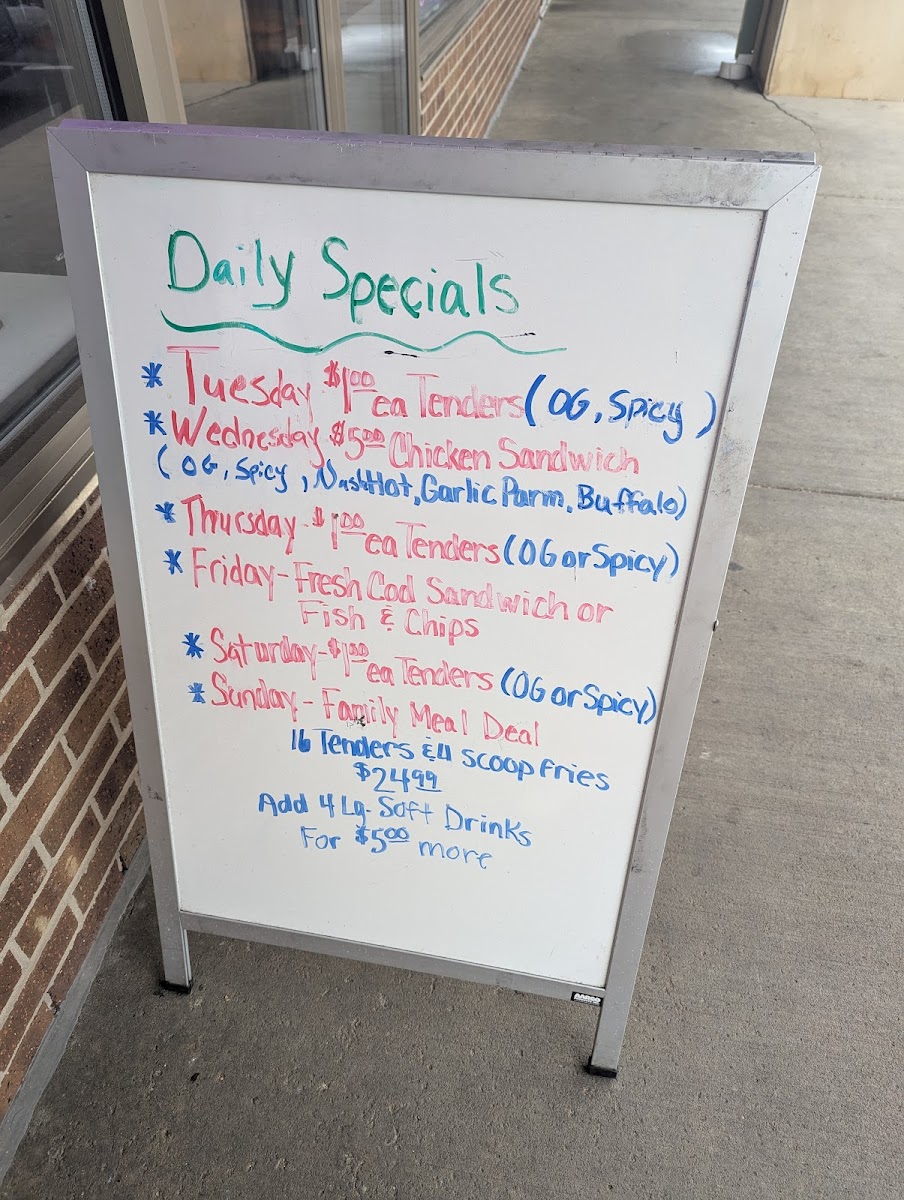 Daily Specials
* Tuesday $1.00 ea Tenders (OG, Spicy)
* Wednesday $5.00 Chicken Sandwich
(OG, Spicy, NashHot, Garlic Parm, Buffalo)
* Thursday - $1.00 ea Tenders (OG or Spicy)
* Friday - Fresh Cod Sandwich or
Fish & Chips
* Saturday - $1.00 ea Tenders (OG or Spicy)
* Sunday - Family Meal Deal
16 Tenders & 4 scoop fries
$24.99
Add 4 Lg. Soft Drinks
For $5.00 more